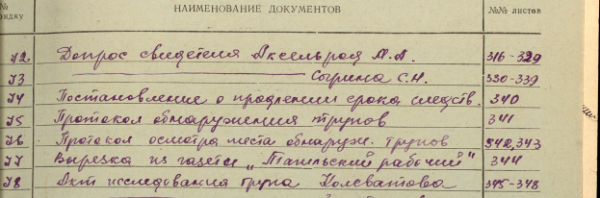 № НАИМЕНОВАНИЕ ДОКУМЕНТОВ №№ листов
рядку
72. Допрос свидетеля Аксельрод М.А. 316-329
73 ———— Согрина С.Н. 330-339
74 Постановление о продлении срока следств. 340
75 Протокол обнаружения трупов 341
76 Протокол осмотра места обнаруж. трупов 342,343
77 Вырезка из газеты „Тагильский рабочий" 344
78 Акт исследования трупа Колеватова 345-348